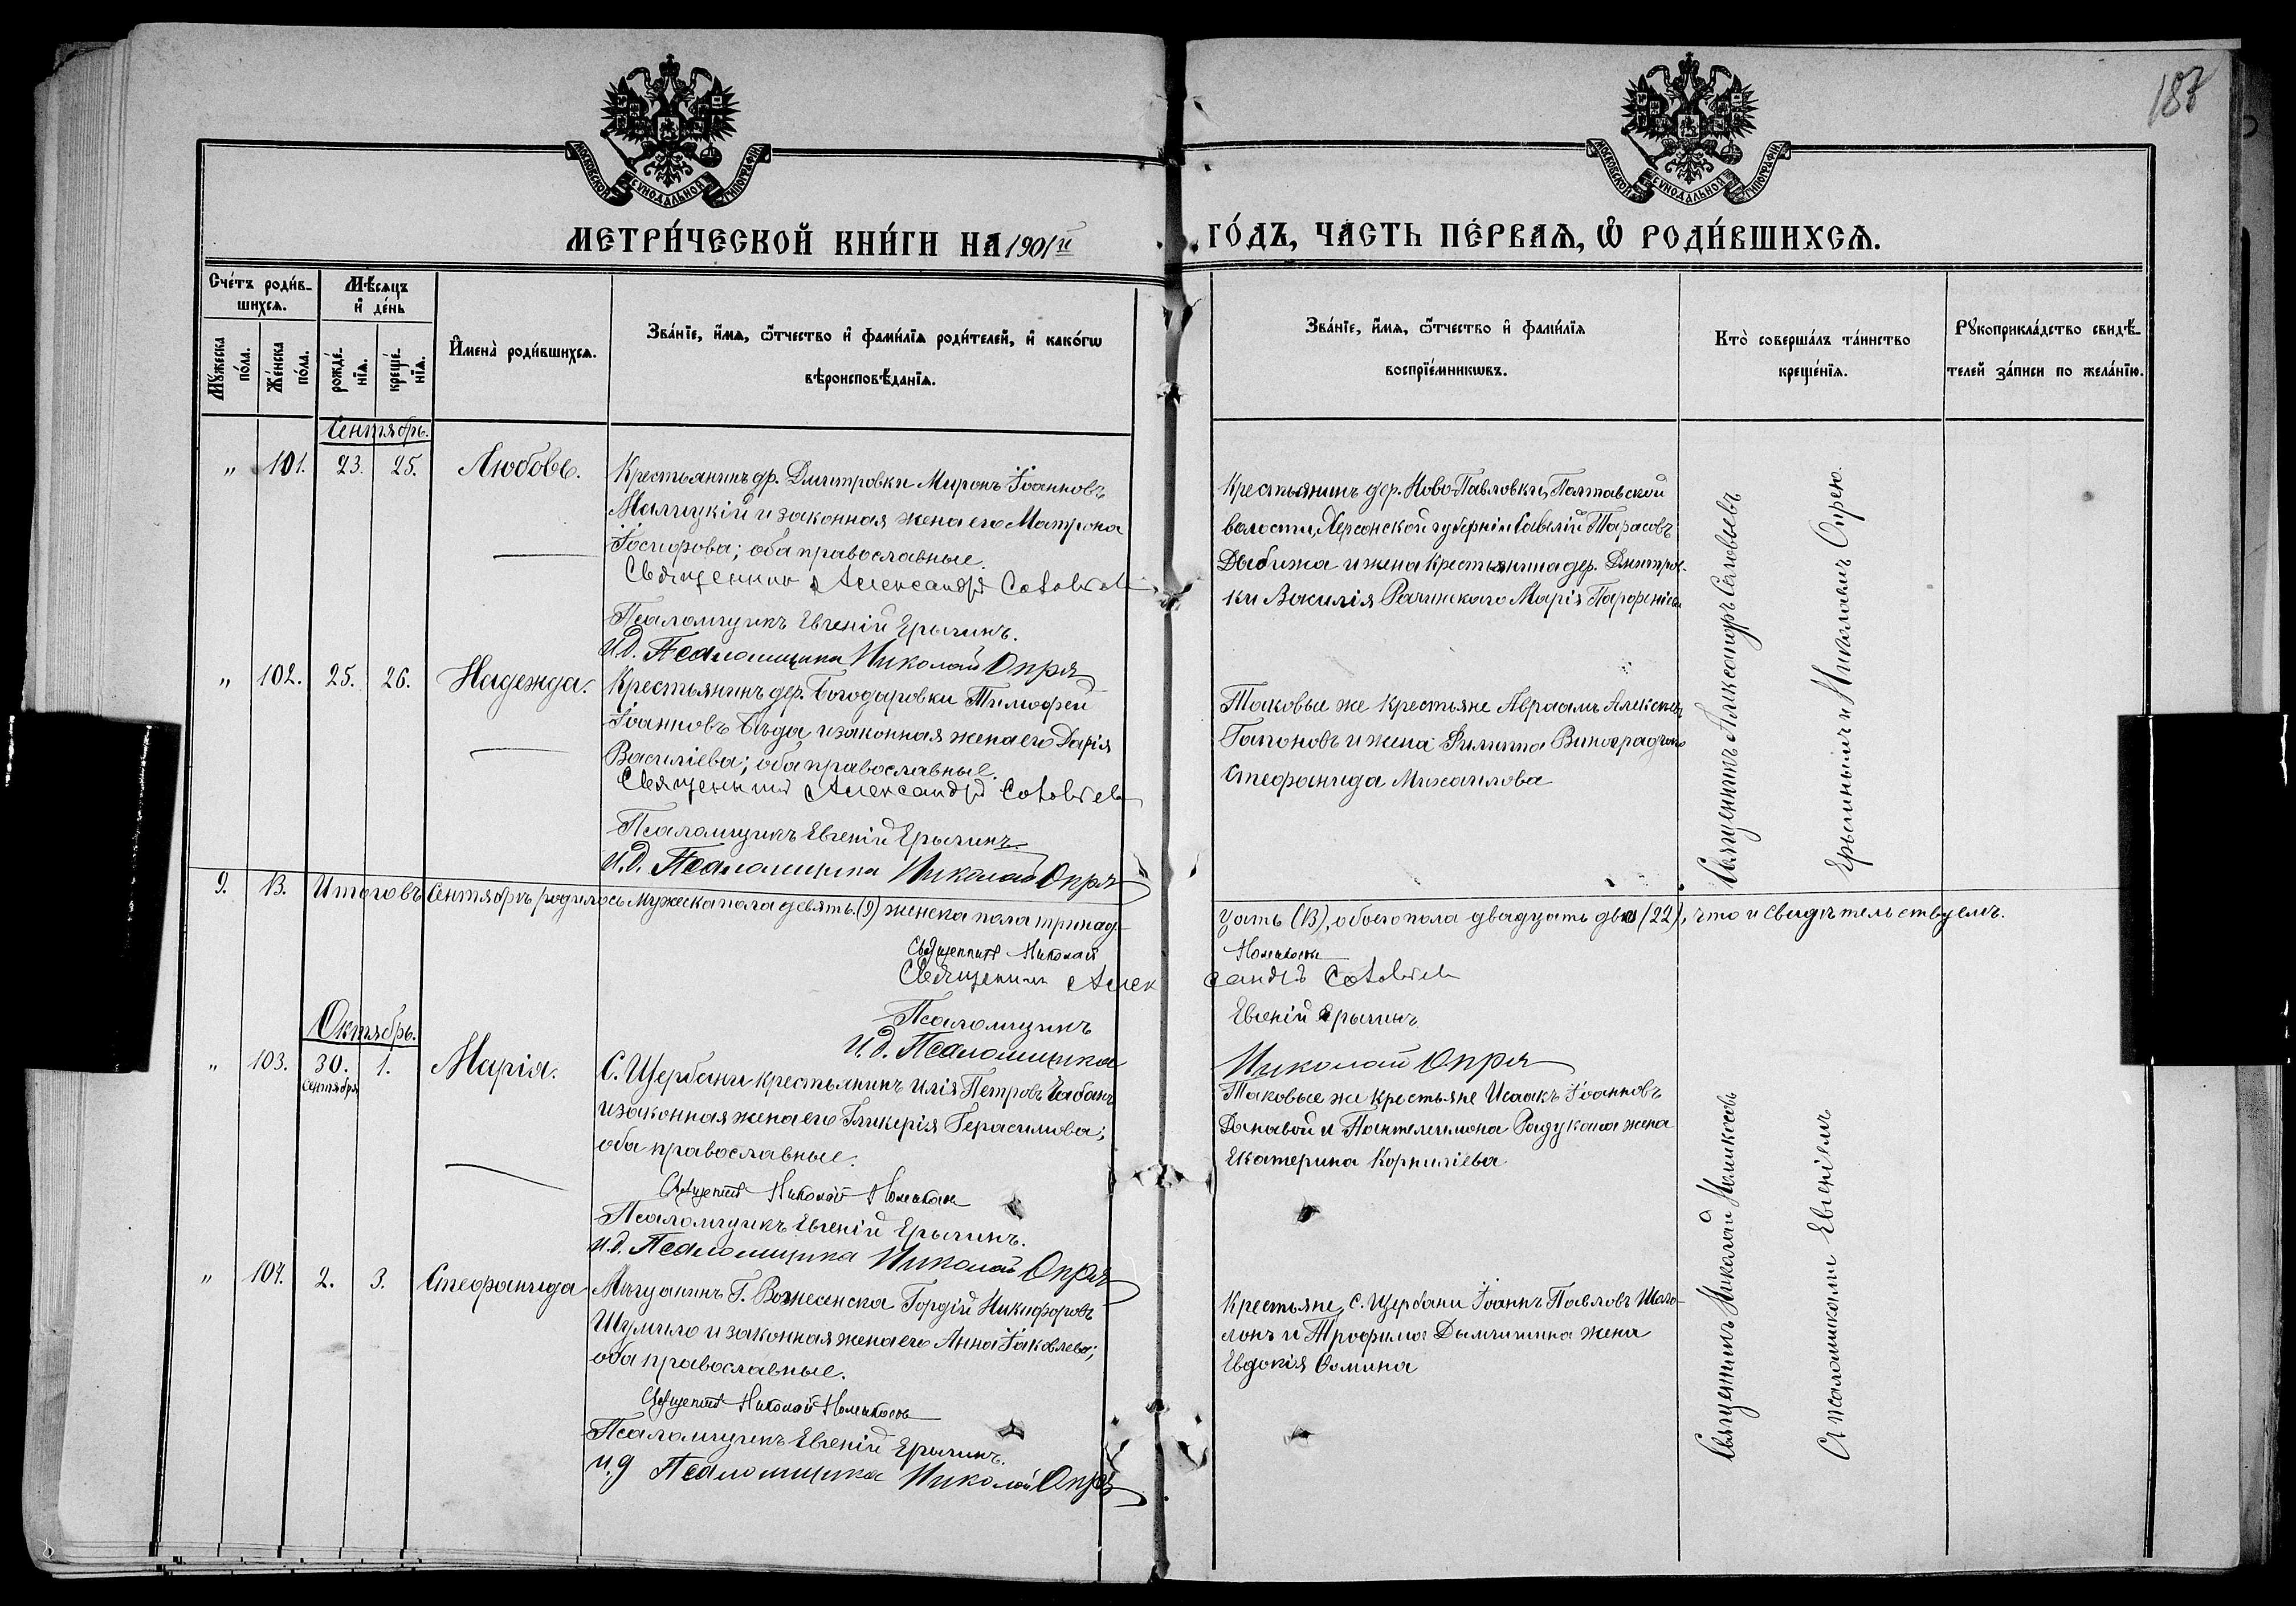 187
МОСКОВСКОЙ СѴНОДАЛЬНОЙ ТИПОГРАФІИ
МОСКОВСКОЙ СѴНОДАЛЬНОЙ ТИПОГРАФІИ
МЕТРИ́ЧЕСКОЙ КНИ́ГИ НА 1901й ГО́ДЪ, ЧАСТЬ ПЕ́РВАѦ, Ѡ РОДИ́ВШИХСѦ.
Сче́тъ роди́в-
шихсѧ.
Мѣ́сѧцъ
и҆ де́нь
Мꙋ́жеска
по́ла.
Же́нска
по́ла.
рожде́-
нїѧ.
креще́-
нїѧ.
И҆мена̀ роди́вшихсѧ.
Зва́нїе, и҆́мѧ, ѻ҆́тчество и҆ фами́лїѧ роди́телей, и҆ како́гѡ
вѣроисповѣ́данїѧ.
Зва́нїе, и҆́мѧ, ѻ҆́тчество и҆ фами́лїѧ
воспрїе́мникѡвъ.
Кто̀ соверша́лъ та́инство
креще́нїѧ.
Рꙋкоприкла́дство свидѣ́-
телей за́писи по жела́нїю.
Сентябрь.
" 101. 23. 25. Любовь.
Крестьянинъ др. Дмитровки Миронъ Іоанновъ
Малицкій и законная жена его Матрона
Іосифова; оба православные.
Священникъ Александръ Соловьевъ
Псаломщикъ Евгеній Ерыгинъ.
И.д. Псаломщика Николай Опря
Крестьянинъ дер. Ново-Павловки, Полтавской
волости, Херсонской губерніи Савелій Тарасовъ
Дыбижа и жена крестьянина дер. Дмитров-
ки Василія Рачинскаго Марія Парфеніева
Священникъ Александръ Соловьевъ
Ерыгинымъ и Николаемъ Опрею.
" 102. 25. 26. Надежда.
Крестьянинъ дер. Богодаровки Тимофей
Іоанновъ Бѣда и законная жена его Дарія
Василіева; оба православные.
Священникъ Александръ Соловьевъ
Псаломщикъ Евгеній Ерыгинъ
И.д. Псаломщика Николай Опря
Таковые же крестьяне Авраамъ Алексѣевъ
Гапоновъ и жена Филиппа
Стефанида Михаилова
9. 13. Итого въ Сентябрѣ родилось мужеска пола девять (9) женска пола тринад-
цать (13), обоего пола двадцать два (22), что и свидѣтельствуемъ.
Священникъ Николай
Священникъ Александръ Соловьевъ
Псаломщикъ Евгеній Ерыгинъ
И.д. Псаломщика Николай Опря
Октябрь.
" 103. 30. Сентября 1. Марія.
С. Щербани крестьянинъ Илія Петровъ Чабанъ
и законная жена его Гликерія Герасимова;
оба православные.
Священникъ Николай
Псаломщикъ Евгеній Ерыгинъ.
И.д. Псаломщика Николай Опря
Таковые же крестьяне Исаакъ Іоанновъ
и Пантелеимона жена
Екатерина Корниліева
Священникъ Николай
Съ псаломщикомъ Евгеніемъ
" 104. 2. 3. Стефанида
Мѣщанинъ Г. Вознесенска Гордій Никифоровъ
Шумило и законная жена его Анна Іаковлева;
оба православные.
Священникъ Николай
Псаломщикъ Евгеній Ерыгинъ.
И.д. Псаломщика Николай Опря
Крестьяне с. Щербани Іоаннъ Павловъ
и Трофима жена
Евдокія Ѳомина